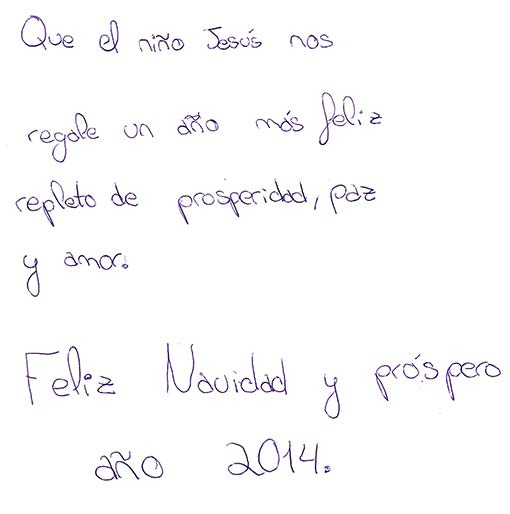 Que el niño Jesús nos
regale un año más feliz
repleto de prosperidad, paz
y amor.
Feliz Navidad y próspero
año 2014.